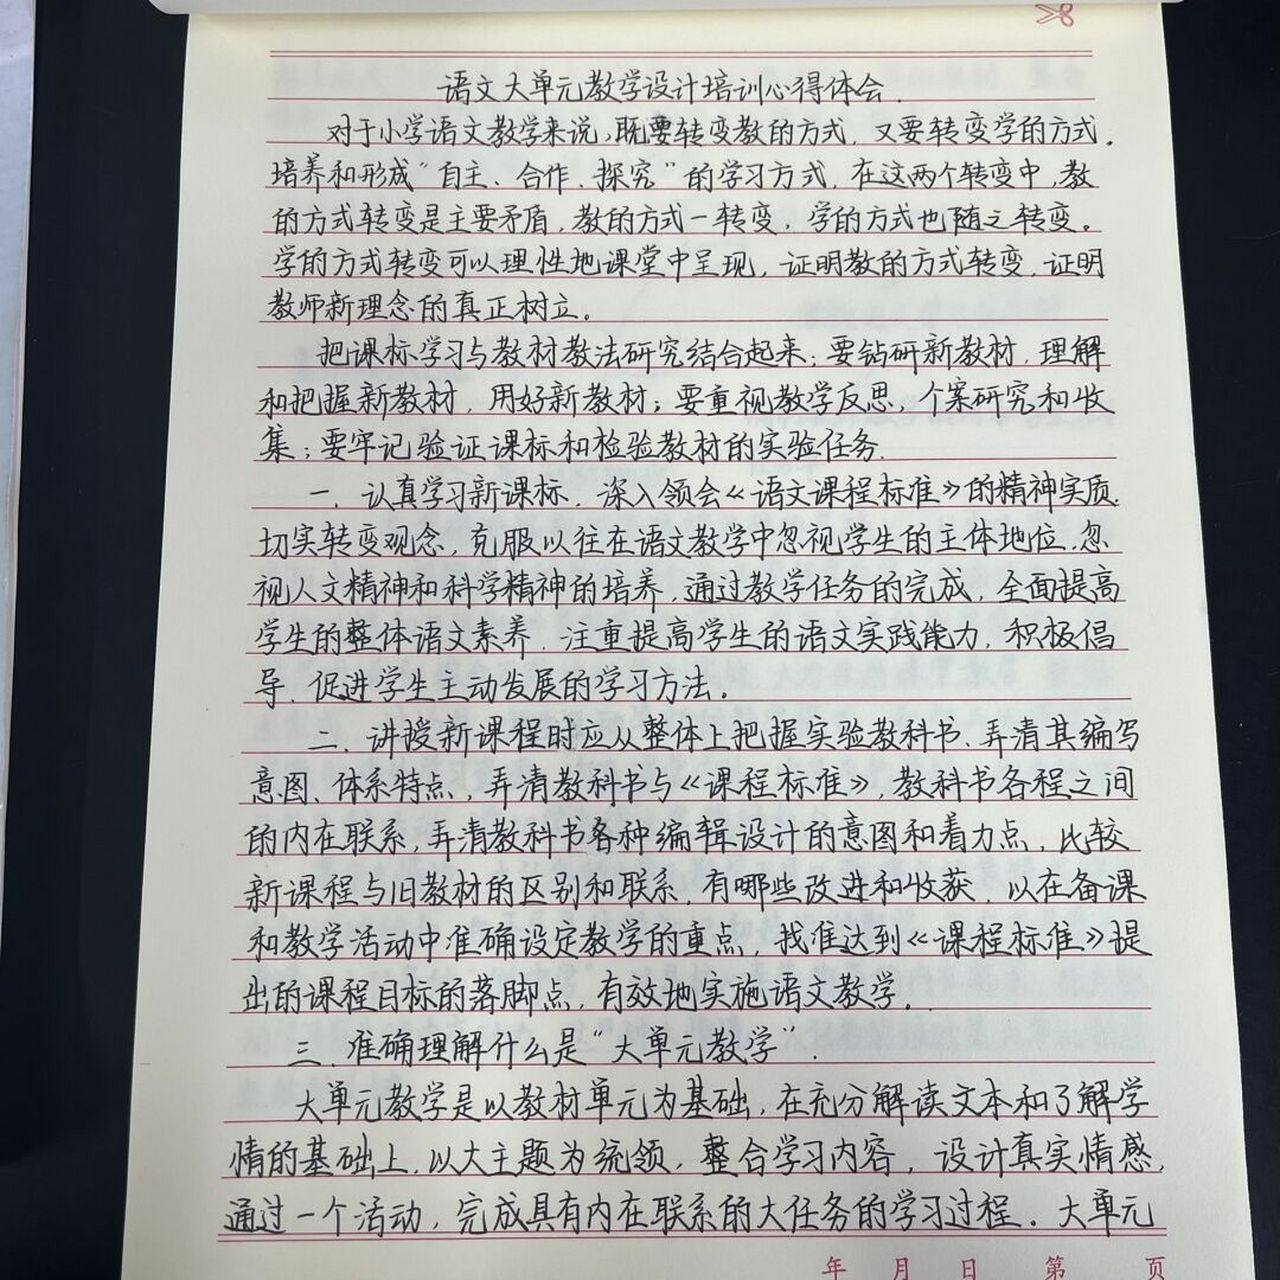 语文大单元教学设计培训心得体会.
对于小学语文教学来说,既要转变教的方式,又要转变学的方式.
培养和形成"自主、合作、探究"的学习方式,在这两个转变中,教
的方式转变是主要矛盾,教的方式一转变,学的方式也随之转变。
学的方式转变可以理性地课堂中呈现,证明教的方式转变,证明
教师新理念的真正树立。
把课标学习与教材教法研究结合起来;要钻研新教材,理解
和把握新教材,用好新教材;要重视教学反思,个案研究和收
集;要牢记验证课标和检验教材的实验任务.
一、认真学习新课标,深入领会《语文课程标准》的精神实质.
切实转变观念,克服以往在语文教学中忽视学生的主体地位,忽
视人文精神和科学精神的培养,通过教学任务的完成,全面提高
学生的整体语文素养,注重提高学生的语文实践能力,积极倡
导、促进学生主动发展的学习方法。
二、讲授新课程时应从整体上把握实验教科书、弄清其编写
意图、体系特点,弄清教科书与《课程标准》,教科书各程之间
的内在联系,弄清教科书各种编辑设计的意图和着力点,比较
新课程与旧教材的区别和联系,有哪些改进和收获,以在备课
和教学活动中准确设定教学的重点,找准达到《课程标准》提
出的课程目标的落脚点,有效地实施语文教学.
三、准确理解什么是"大单元教学".
大单元教学是以教材单元为基础,在充分解读文本和了解学
情的基础上,以大主题为统领,整合学习内容,设计真实情感,
通过一个活动,完成具有内在联系的大任务的学习过程。大单元
年 月 日 第 页